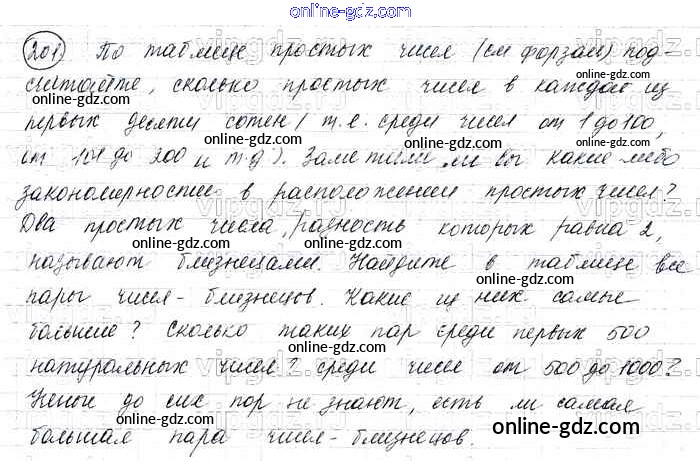 online-gdz.com
201) По таблице простых чисел (см форзац) под-
считайте, сколько простых чисел в каждой из
первых десяти сотен (т.е. среди чисел от 1 до 100,
от 101 до 200 и т.д.). Заметили ли вы какие либо
закономерности в расположении простых чисел?
Два простых числа, разность которых равна 2,
называют близнецами. Найдите в таблице все
пары чисел-близнецов. Какие из них самые
большие? Сколько таких пар среди первых 500
натуральных чисел? среди чисел от 500 до 1000?
Ученые до сих пор не знают, есть ли самая
большая пара чисел-близнецов.
online-gdz.com